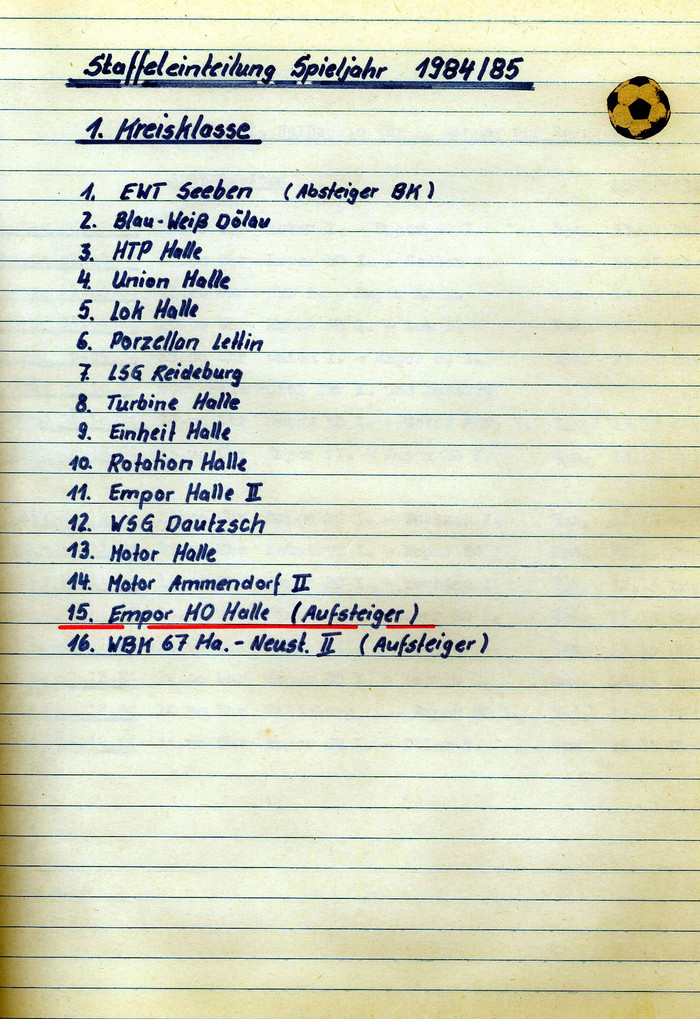 Staffeleinteilung Spieljahr 1984/85
1. Kreisklasse
1. EWT Seeben (Absteiger BK)
2. Blau-Weiß Dölau
3. HTP Halle
4. Union Halle
5. Lok Halle
6. Porzellan Lettin
7. LSG Reideburg
8. Turbine Halle
9. Einheit Halle
10. Rotation Halle
11. Empor Halle II
12. WSG Dautzsch
13. Motor Halle
14. Motor Ammendorf II
15. Empor HO Halle (Aufsteiger)
16. WBK 67 Ha.-Neust. II (Aufsteiger)